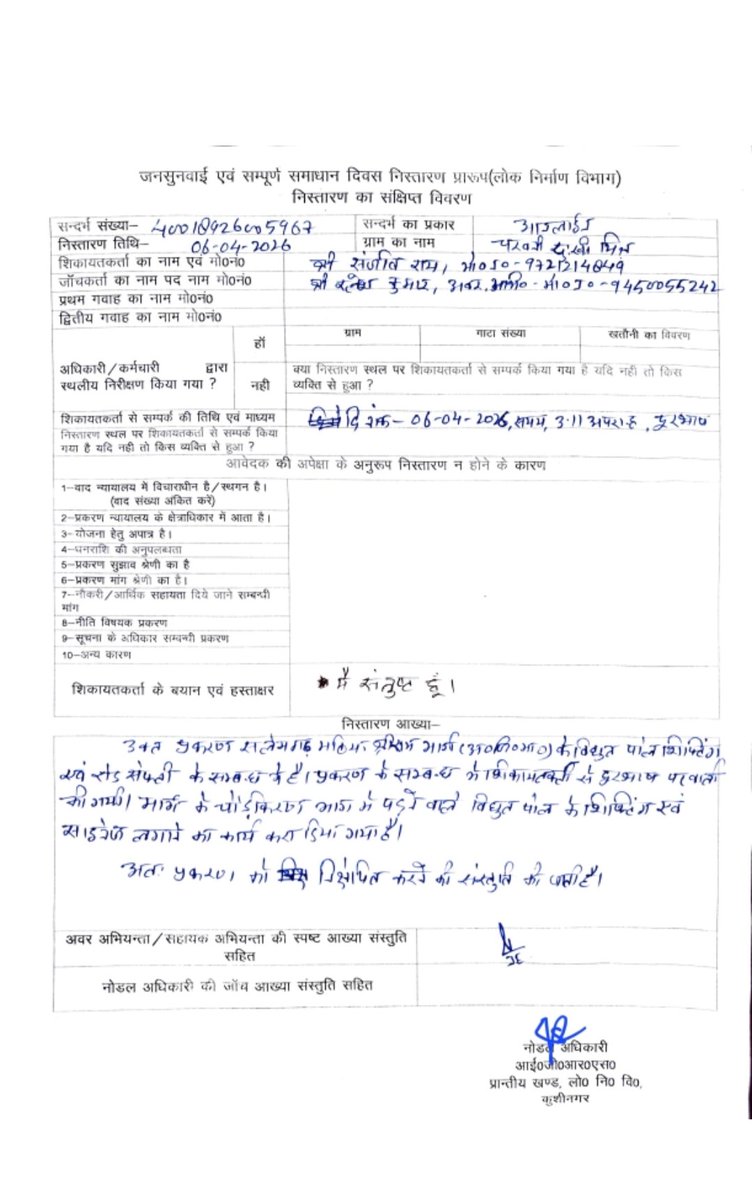 जनसुनवाई एवं सम्पूर्ण समाधान दिवस निस्तारण प्रारूप(लोक निर्माण विभाग)
निस्तारण का संक्षिप्त विवरण
सन्दर्भ संख्या– 40018926005967 सन्दर्भ का प्रकार
निस्तारण तिथि– 06-04-2026 ग्राम का नाम
शिकायतकर्ता का नाम एवं मो0नं0 श्री संजीव राम, मो0नं0-9721214849
जॉचकर्ता का नाम पद नाम मो0नं0 श्री कुमार, अवर अभि0- मो0नं0-9450055242
प्रथम गवाह का नाम मो0नं0
द्वितीय गवाह का नाम मो0नं0
अधिकारी/कर्मचारी द्वारा स्थलीय निरीक्षण किया गया ?
हॉ
ग्राम गाटा संख्या खतौनी का विवरण
नही
क्या निस्तारण स्थल पर शिकायतकर्ता से सम्पर्क किया गया है यदि नही तो किस
व्यक्ति से हुआ ?
शिकायतकर्ता से सम्पर्क की तिथि एवं माध्यम दिनांक-06-04-2026, समय, 3.11 अपराह्न, दूरभाष
निस्तारण स्थल पर शिकायतकर्ता से सम्पर्क किया
गया है यदि नही तो किस व्यक्ति से हुआ ?
आवेदक की अपेक्षा के अनुरूप निस्तारण न होने के कारण
1–वाद न्यायालय में विचाराधीन है/स्थगन है।
(वाद संख्या अंकित करें)
2–प्रकरण न्यायालय के क्षेत्राधिकार में आता है।
3–योजना हेतु अपात्र है।
4–धनराशि की अनुपलब्धता
5–प्रकरण सुझाव श्रेणी का है
6–प्रकरण मांग श्रेणी का है।
7–नौकरी/आर्थिक सहायता दिये जाने सम्बन्धी
मांग
8–नीति विषयक प्रकरण
9–सूचना के अधिकार सम्बन्धी प्रकरण
10–अन्य कारण
शिकायतकर्ता के बयान एवं हस्ताक्षर मै संतुष्ट हूं।
निस्तारण आख्या–
उक्त प्रकरण सलेमगढ़ मार्ग के विद्युत पोल शिफ्टिंग
एवं रोड सेफ्टी के सम्बन्ध में है। प्रकरण के सम्बन्ध में शिकायतकर्ता से दूरभाष पर वार्ता
की गयी। मार्ग के चौड़ीकरण भाग में पड़ने वाले विद्युत पोल के शिफ्टिंग एवं
साइनेज लगाने का कार्य करा दिया गया है।
अतः प्रकरण को निक्षेपित करने की संस्तुति की जाती है।
अवर अभियन्ता/सहायक अभियन्ता की स्पष्ट आख्या संस्तुति
सहित
JE
नोडल अधिकारी की जॉच आख्या संस्तुति सहित
नोडल अधिकारी
आई0जी0आर0एस0
प्रान्तीय खण्ड, लो0 नि0 वि0,
कुशीनगर